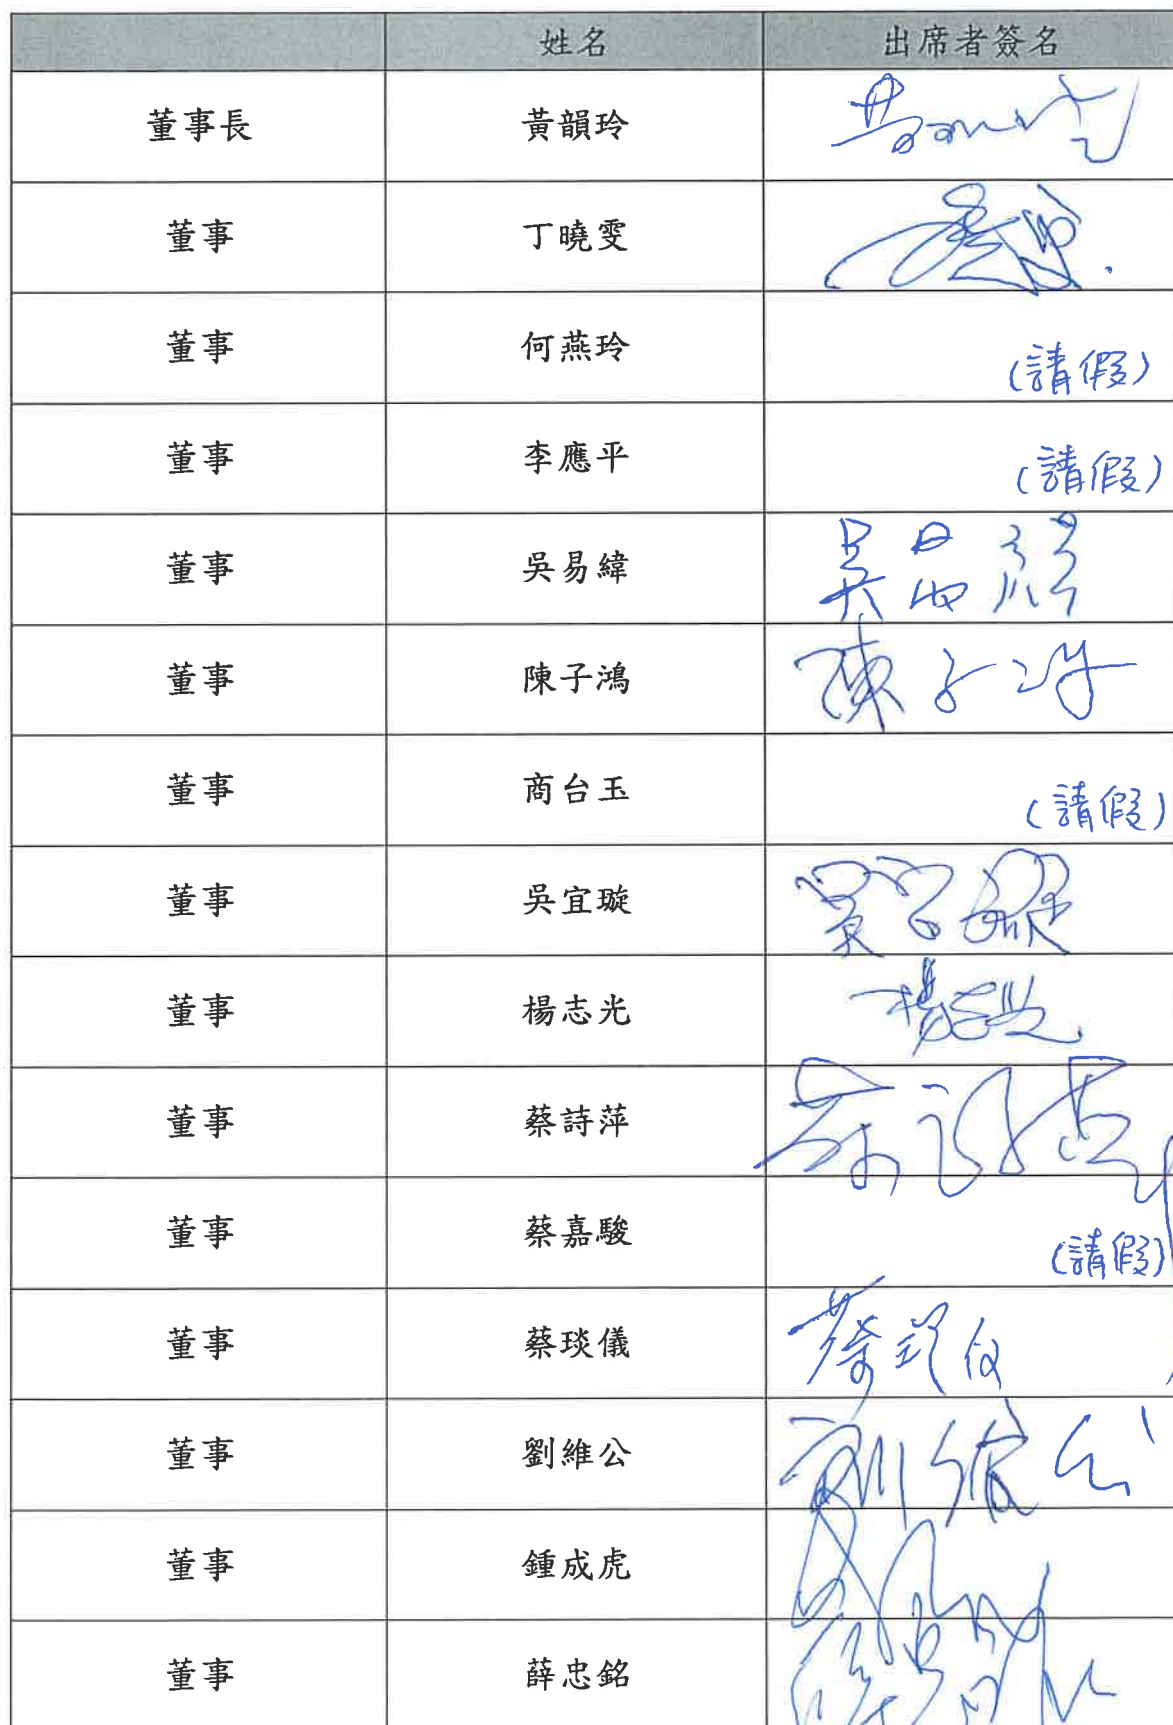 姓名 出席者簽名
董事長 黃韻玲
董事 丁曉雯
董事 何燕玲 (請假)
董事 李應平 (請假)
董事 吳易緯 吳易緯
董事 陳子鴻 陳子鴻
董事 商台玉 (請假)
董事 吳宜璇 吳宜璇
董事 楊志光 楊志光
董事 蔡詩萍 蔡詩萍
董事 蔡嘉駿 (請假)
董事 蔡琰儀 蔡琰儀
董事 劉維公 劉維公
董事 鍾成虎
董事 薛忠銘